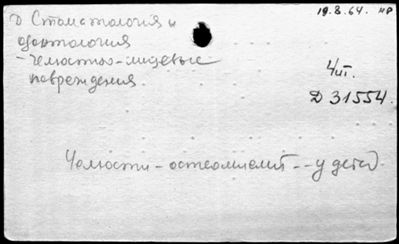 19.8.64. нр
Д Стоматология и
одонтология
- Челюстно-лицевые
повреждения.
4ит.
Д 31554.
Челюсти - остеомиелит -- у детей